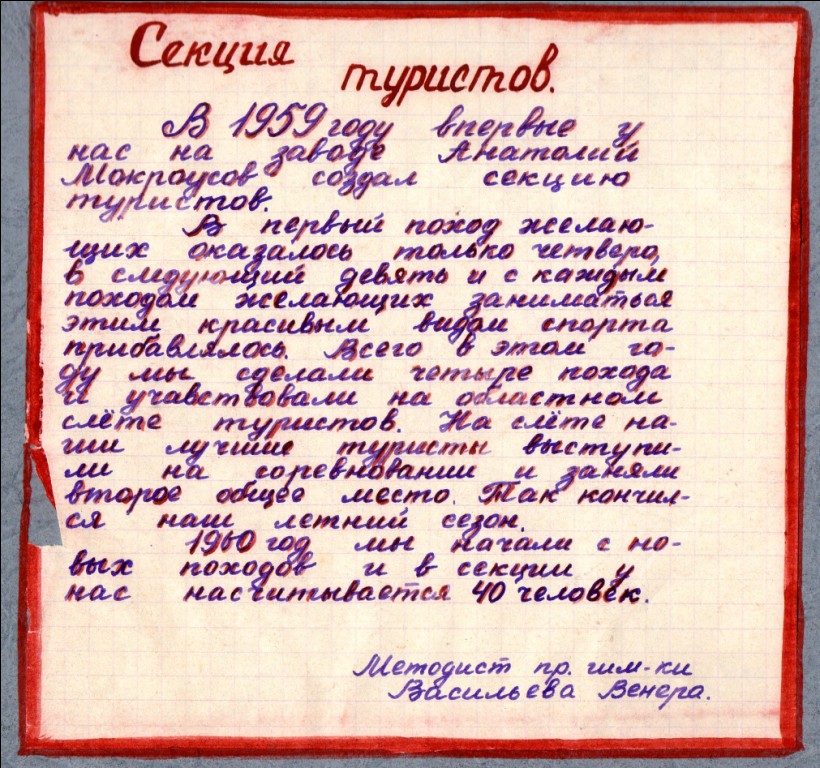 Секция
туристов.
В 1959 году впервые у
нас на заводе Анатолий
Мокроусов создал секцию
туристов.
В первый поход желаю-
щих оказалось только четверо,
в следующий девять и с каждым
походом желающих заниматься
этим красивым видом спорта
прибавлялось. Всего в этом го-
ду мы сделали четыре похода
и учавствовали на областном
слёте туристов. На слёте на-
ши лучшие туристы выступи-
ли на соревновании и заняли
второе общее место. Так кончил-
ся наш летний сезон.
1960 год мы начали с но-
вых походов и в секции у
нас насчитывается 40 человек.
Методист пр. гим-ки
Васильева Венера.